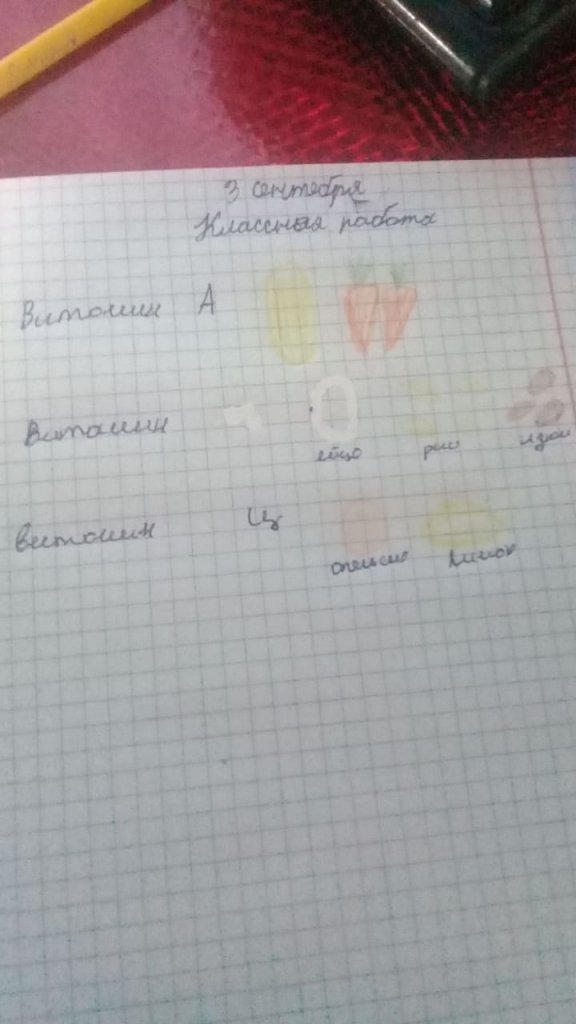 3 сентября
Классная работа
Витамин А
Витамин
яйцо рис изюм
витамин Ц
апельсин лимон